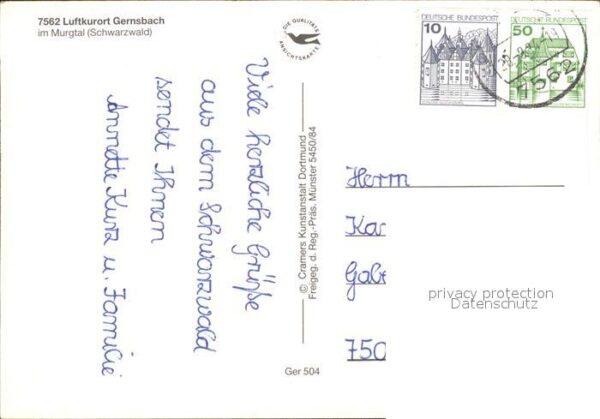 7562 Luftkurort Gernsbach
im Murgtal (Schwarzwald)
DIE QUALITÄTS
ANSICHTSKARTE
DEUTSCHE BUNDESPOST
10
DEUTSCHE BUNDESPOST
50
7562
Viele herzliche Grüße
aus dem Schwarzwald
sendet Ihnen
Annette Kurz u. Familie
© Cramers Kunstanstalt Dortmund
Freigeg. d. Reg.-Präs. Münster 5450/84
Herrn
Ka
Gabe
750
privacy protection
Datenschutz
Ger 504